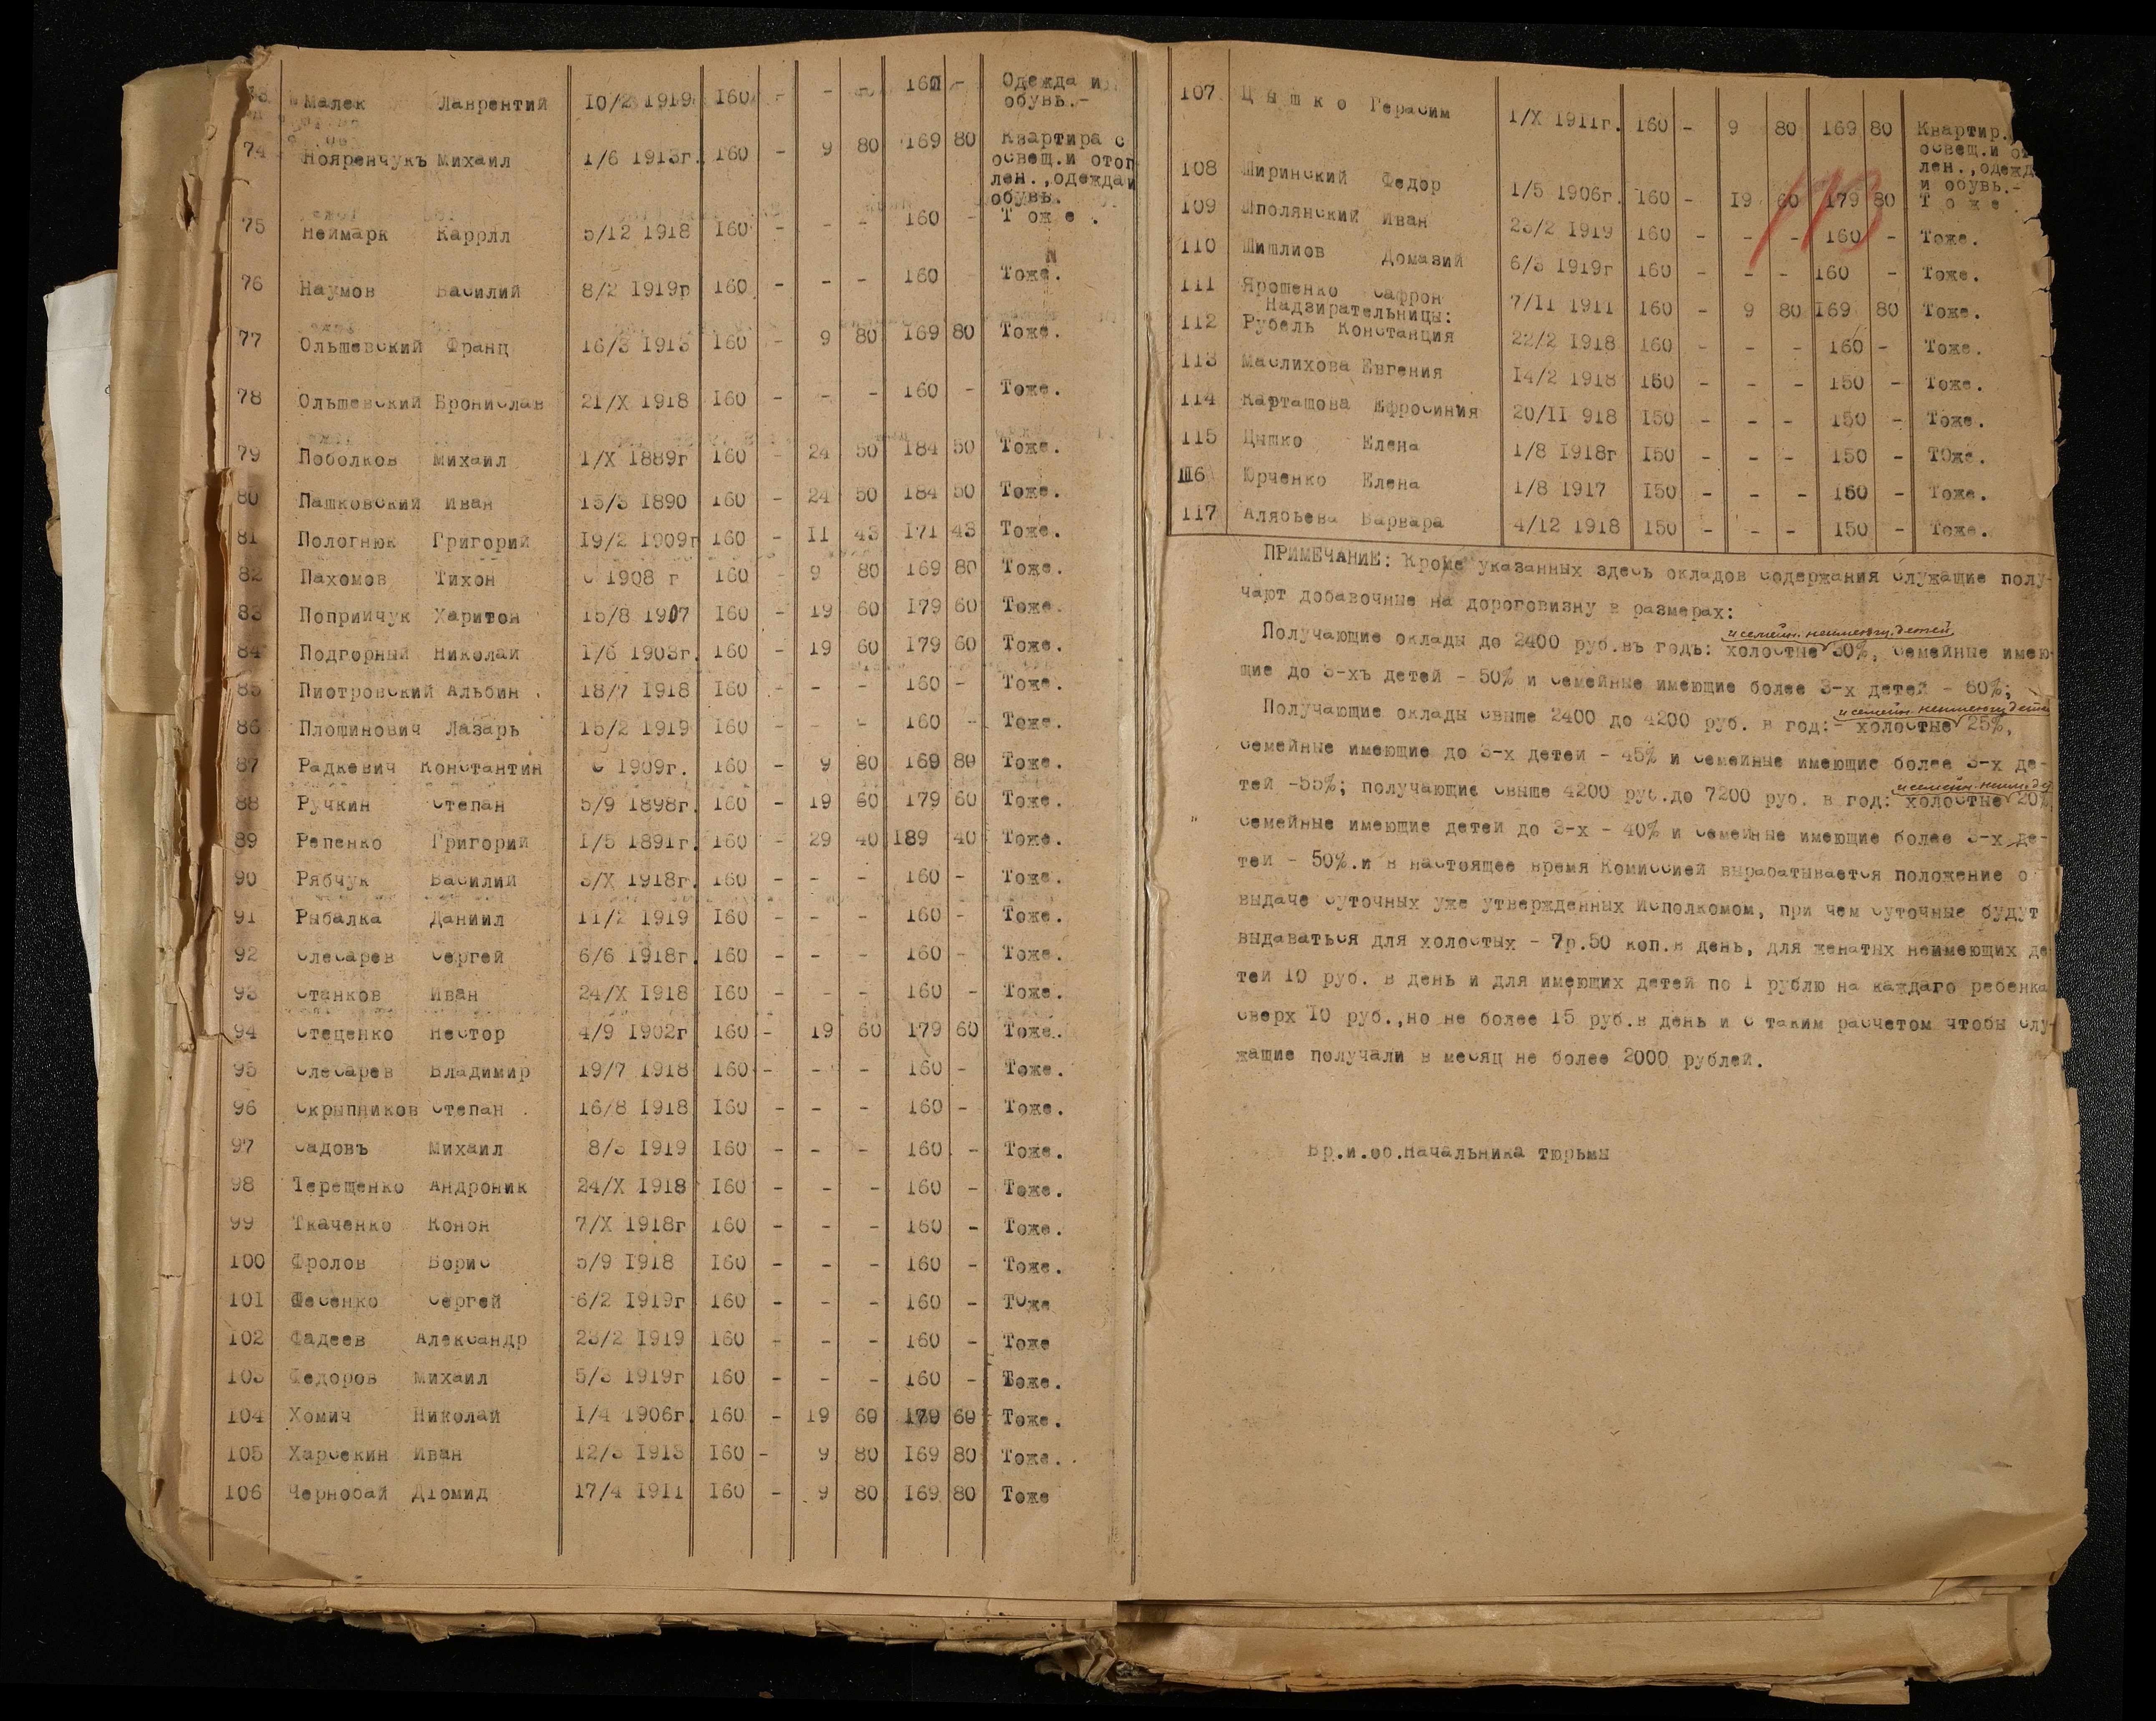 Малек Лаврентий 10/2 1919 160 - - - 160 - Одежда и
обувь.-
74 Нояренчукъ Михаил 1/6 1913г. 160 - 9 80 169 80 Квартира с
освещ.и отоп
лен.,одежда и
обувь.
75 Неймарк Каррлл 5/12 1918 160 - - - 160 - Т о ж е .
76 Наумов Василий 8/2 1919г 160 - - - 160 - Тоже.
77 Ольшевский Франц 16/3 1913 160 - 9 80 169 80 Тоже.
78 Ольшевский Бронислав 21/X 1918 160 - - - 160 - Тоже.
79 Поболков Михаил 1/X 1889г 160 - 24 50 184 50 Тоже.
80 Пашковский Иван 15/3 1890 160 - 24 50 184 50 Тоже.
81 Пологнюк Григорий 19/2 1909г 160 - 11 43 171 43 Тоже.
82 Пахомов Тихон с 1908 г 160 - 9 80 169 80 Тоже.
83 Поприйчук Харитон 15/8 1907 160 - 19 60 179 60 Тоже.
84 Подгорный Николай 1/6 1903г. 160 - 19 60 179 60 Тоже.
85 Пиотровский Альбин 18/7 1918 160 - - - 160 - Тоже.
86 Площинович Лазарь 15/2 1919 160 - - - 160 - Тоже.
87 Радкевич Константин С 1909г. 160 - 9 80 169 80 Тоже.
88 Ручкин Степан 5/9 1898г. 160 - 19 60 179 60 Тоже.
89 Репенко Григорий 1/5 1891г. 160 - 29 40 189 40 Тоже.
90 Рябчук Василий 3/X 1918г. 160 - - - 160 - Тоже.
91 Рыбалка Даниил 11/2 1919 160 - - - 160 - Тоже.
92 Слесарев Сергей 6/6 1918г. 160 - - - 160 - Тоже.
93 Станков Иван 24/X 1918 160 - - - 160 - Тоже.
94 Стеценко Нестор 4/9 1902г 160 - 19 60 179 60 Тоже.
95 Слесарев Владимир 19/7 1918 160 - - - 160 - Тоже.
96 Скрыпников Степан 16/8 1918 160 - - - 160 - Тоже.
97 Садовъ Михаил 8/3 1919 160 - - - 160 - Тоже.
98 Терещенко Андроник 24/X 1918 160 - - - 160 - Тоже.
99 Ткаченко Конон 7/X 1918г 160 - - - 160 - Тоже.
100 Фролов Борис 5/9 1918 160 - - - 160 - Тоже.
101 Фесенко Сергей 6/2 1919г 160 - - - 160 - ТОже
102 Фадеев Александр 23/2 1919 160 - - - 160 - Тоже
103 Федоров Михаил 5/3 1919г 160 - - - 160 - Тоже.
104 Хомич Николай 1/4 1906г. 160 - 19 60 179 60 Тоже.
105 Харсекин Иван 12/3 1913 160 - 9 80 169 80 Тоже.
106 Чернобай Діомид 17/4 1911 160 - 9 80 169 80 Тоже
107 Ц ы ш к о Герасим 1/X 1911г. 160 - 9 80 169 80 Квартир.
освещ.и от
лен.,одежд
и обувь.-
108 Ширинский Федор 1/5 1906г. 160 - 19 60 179 80 Т о ж е
109 Шполянский Иван 23/2 1919 160 - - - 160 - Тоже.
110 Шишлиов Домазий 6/3 1919г 160 - - - 160 - Тоже.
111 Ярошенко Сафрон 7/11 1911 160 - 9 80 169 80 Тоже.
Надзирательницы:
112 Рубель Констанция 22/2 1918 160 - - - 160 - Тоже.
113 Маслихова Евгения 14/2 1918 150 - - - 150 - Тоже.
114 Карташова Ефросиния 20/11 918 150 - - - 150 - Тоже.
115 Цышко Елена 1/8 1918г 150 - - - 150 - ТОже.
116 Юрченко Елена 1/8 1917 150 - - - 150 - Тоже.
117 Алябьева Варвара 4/12 1918 150 - - - 150 - Тоже.
ПРИМЕЧАНИЕ: Кроме указанных здесь окладов содержания служащие полу-
чают добавочные на дороговизну в размерах:
и семейн. неимеющ. детей
Получающие оклады до 2400 руб.въ годъ: холостые 30%, семейные имею-
щие до 3-хъ детей - 50% и семейные имеющие более 3-х детей - 60%;
и семейн. неимеющ. дети
Получающие оклады свыше 2400 до 4200 руб. в год:- холостые 25%,
семейные имеющие до 3-х детей - 45% и семейные имеющие более 3-х де-
и семейн. неим. де
тей -55%; получающие свыше 4200 руб.до 7200 руб. в год: холостые 20%
семейные имеющие детей до 3-х - 40% и семейные имеющие более 3-х де-
тей - 50%.и в настоящее время Комиссией вырабатывается положение о
выдаче суточных уже утвержденных Исполкомом, при чем суточные будут
выдаваться для холостых - 7р.50 коп.в день, для женатых неимеющих де
тей 10 руб. в день и для имеющих детей по 1 рублю на каждаго ребенка
сверх 10 руб.,но не более 15 руб.в день и с таким расчетом чтобы слу-
жащие получали в месяц не более 2000 рублей.
Вр.и.об.Начальника тюрьмы